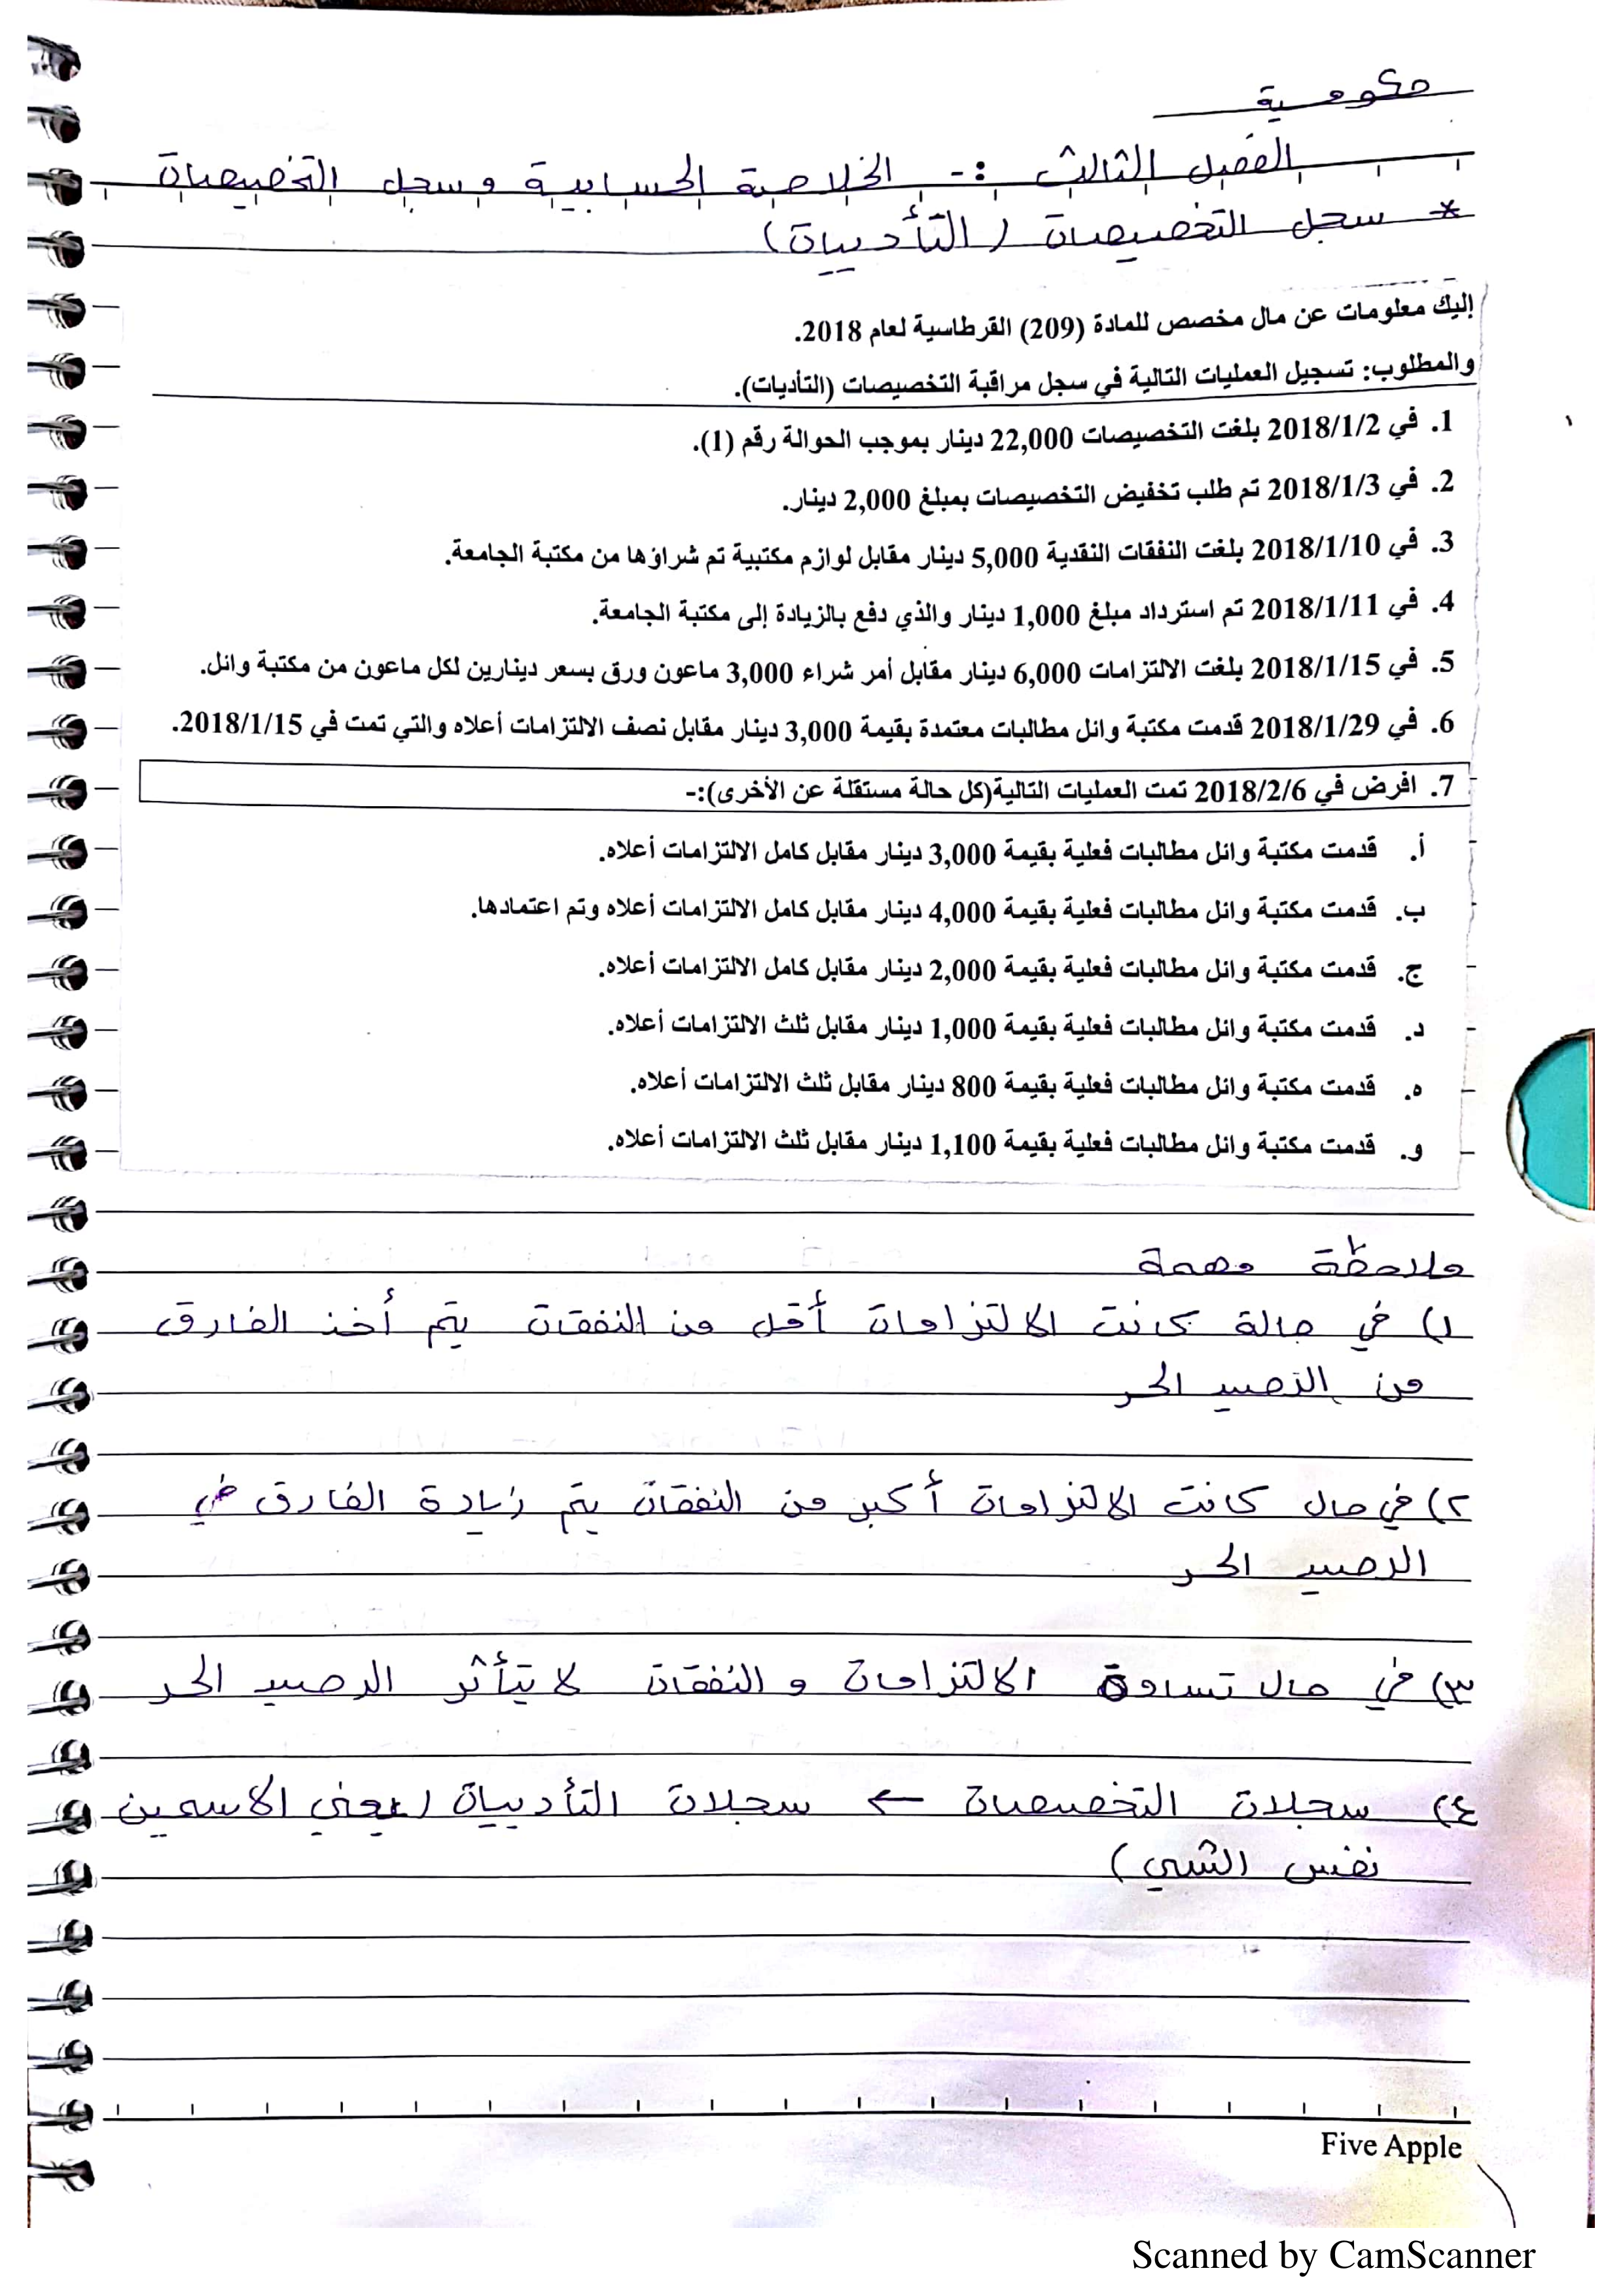 حكومية
الفصل الثالث :- الخلاصة الحسابية وسجل التخصيصات
* سجل التخصيصات (التأديبات)
إليك معلومات عن مال مخصص للمادة (209) القرطاسية لعام 2018.
والمطلوب: تسجيل العمليات التالية في سجل مراقبة التخصيصات (التأديات).
1. في 2018/1/2 بلغت التخصيصات 22,000 دينار بموجب الحوالة رقم (1).
2. في 2018/1/3 تم طلب تخفيض التخصيصات بمبلغ 2,000 دينار.
3. في 2018/1/10 بلغت النفقات النقدية 5,000 دينار مقابل لوازم مكتبية تم شراؤها من مكتبة الجامعة.
4. في 2018/1/11 تم استرداد مبلغ 1,000 دينار والذي دفع بالزيادة إلى مكتبة الجامعة.
5. في 2018/1/15 بلغت الالتزامات 6,000 دينار مقابل أمر شراء 3,000 ماعون ورق بسعر دينارين لكل ماعون من مكتبة وائل.
6. في 2018/1/29 قدمت مكتبة وائل مطالبات معتمدة بقيمة 3,000 دينار مقابل نصف الالتزامات أعلاه والتي تمت في 2018/1/15.
7. افرض في 2018/2/6 تمت العمليات التالية(كل حالة مستقلة عن الأخرى):-
أ. قدمت مكتبة وائل مطالبات فعلية بقيمة 3,000 دينار مقابل كامل الالتزامات أعلاه.
ب. قدمت مكتبة وائل مطالبات فعلية بقيمة 4,000 دينار مقابل كامل الالتزامات أعلاه وتم اعتمادها.
ج. قدمت مكتبة وائل مطالبات فعلية بقيمة 2,000 دينار مقابل كامل الالتزامات أعلاه.
د. قدمت مكتبة وائل مطالبات فعلية بقيمة 1,000 دينار مقابل ثلث الالتزامات أعلاه.
ه. قدمت مكتبة وائل مطالبات فعلية بقيمة 800 دينار مقابل ثلث الالتزامات أعلاه.
و. قدمت مكتبة وائل مطالبات فعلية بقيمة 1,100 دينار مقابل ثلث الالتزامات أعلاه.
ملاحظة مهمة
١) في حالة كانت الالتزامات أقل من النفقات يتم أخذ الفارق
من الرصيد الحر
٢) في حال كانت الالتزامات أكبر من النفقات يتم زيادة الفارق في
الرصيد الحر
٣) في حال تساوة الالتزامات و النفقات لا يتأثر الرصيد الحر
٤) سجلات التخصيصات ← سجلات التأديبات (يعني الاسمين
نفس الشي)
Five Apple
Scanned by CamScanner